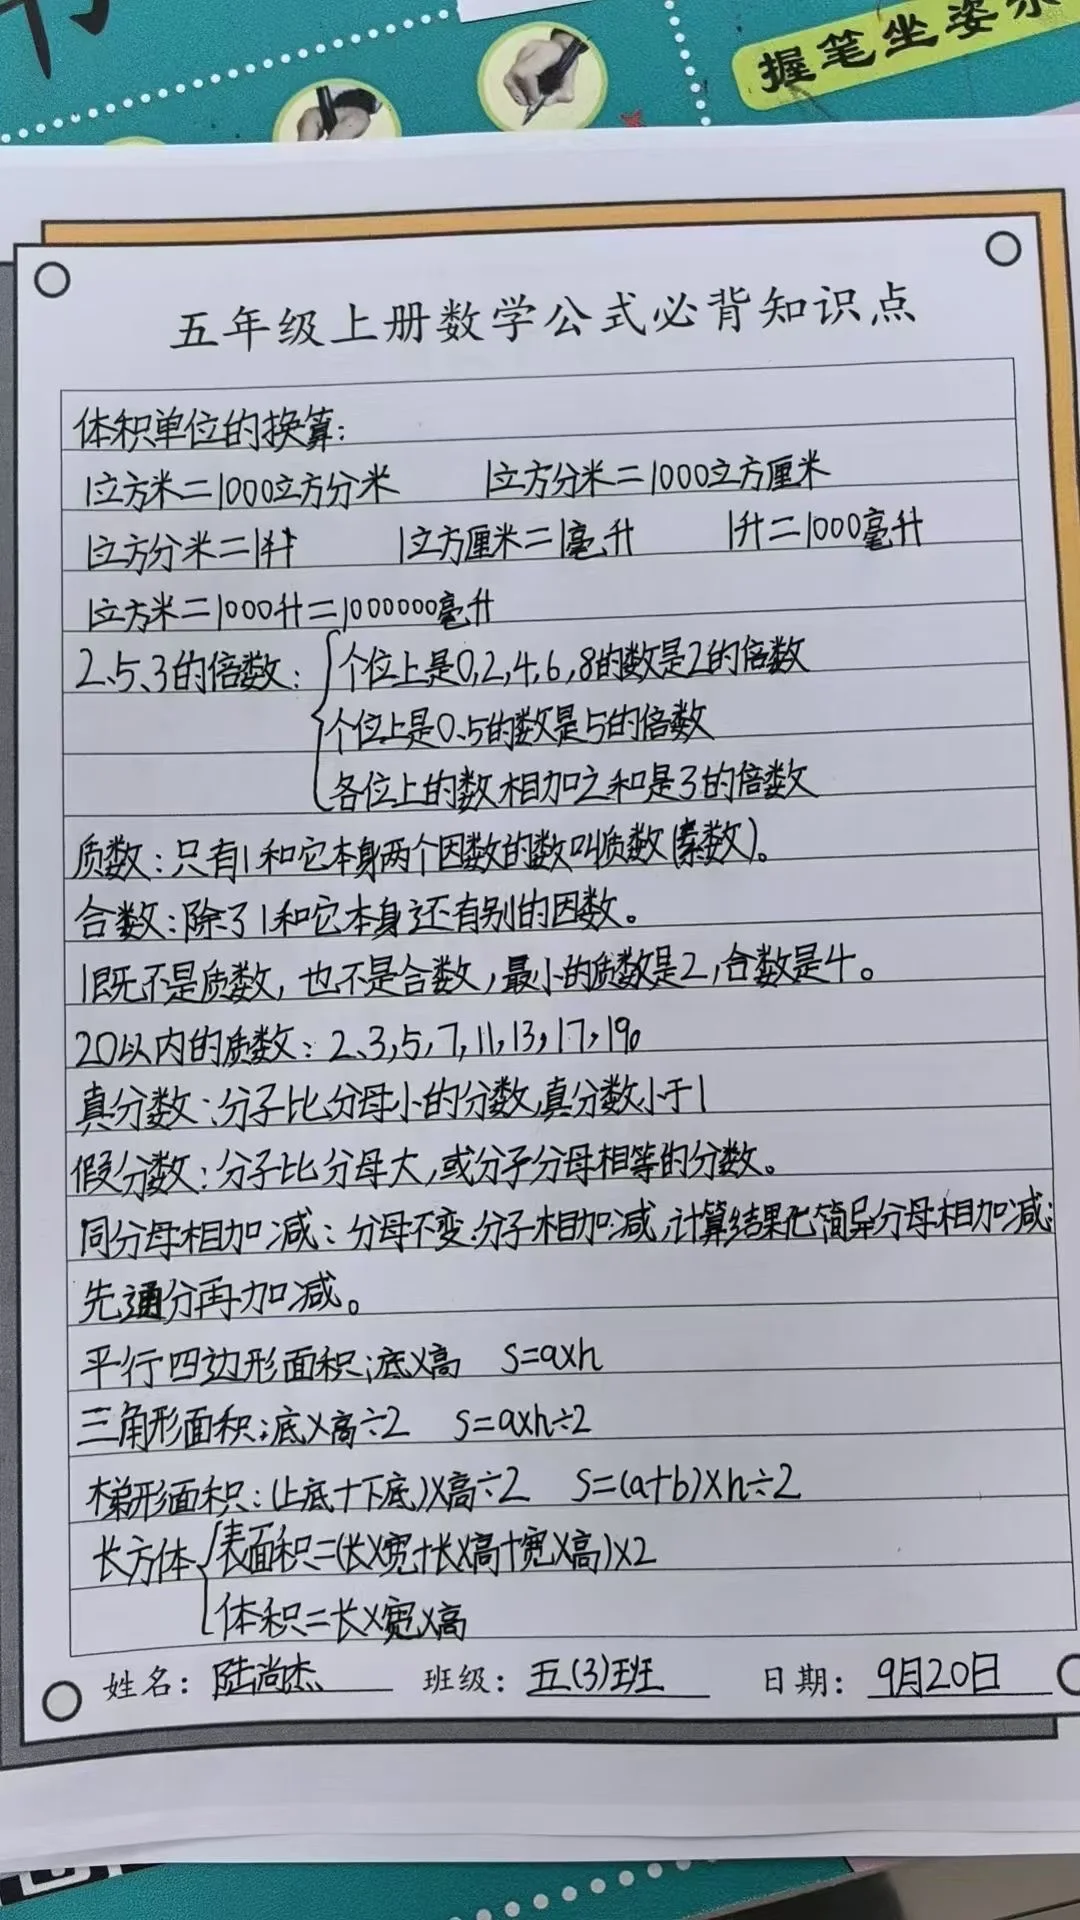 握笔坐姿示
五年级上册数学公式必背知识点
体积单位的换算:
1立方米=1000立方分米 1立方分米=1000立方厘米
1立方分米=1升 1立方厘米=1毫升 1升=1000毫升
1立方米=1000升=1000000毫升
2、5、3的倍数: 个位上是0,2,4,6,8的数是2的倍数
个位上是0、5的数是5的倍数
各位上的数相加之和是3的倍数
质数:只有1和它本身两个因数的数叫质数(素数)。
合数:除了1和它本身还有别的因数。
1既不是质数,也不是合数,最小的质数是2,合数是4。
20以内的质数:2、3,5,7,11,13,17,19。
真分数:分子比分母小的分数,真分数小于1
假分数:分子比分母大,或分子分母相等的分数。
同分母相加减:分母不变.分子相加减,计算结果化简异分母相加减:
先通分再加减。
平行四边形面积:底×高 S=a×h
三角形面积:底×高÷2 S=a×h÷2
梯形面积:(上底+下底)×高÷2 S=(a+b)×h÷2
长方体 表面积=(长×宽+长×高+宽×高)×2
体积=长×宽×高
姓名:陆尚杰 班级:五(3)班 日期:9月20日